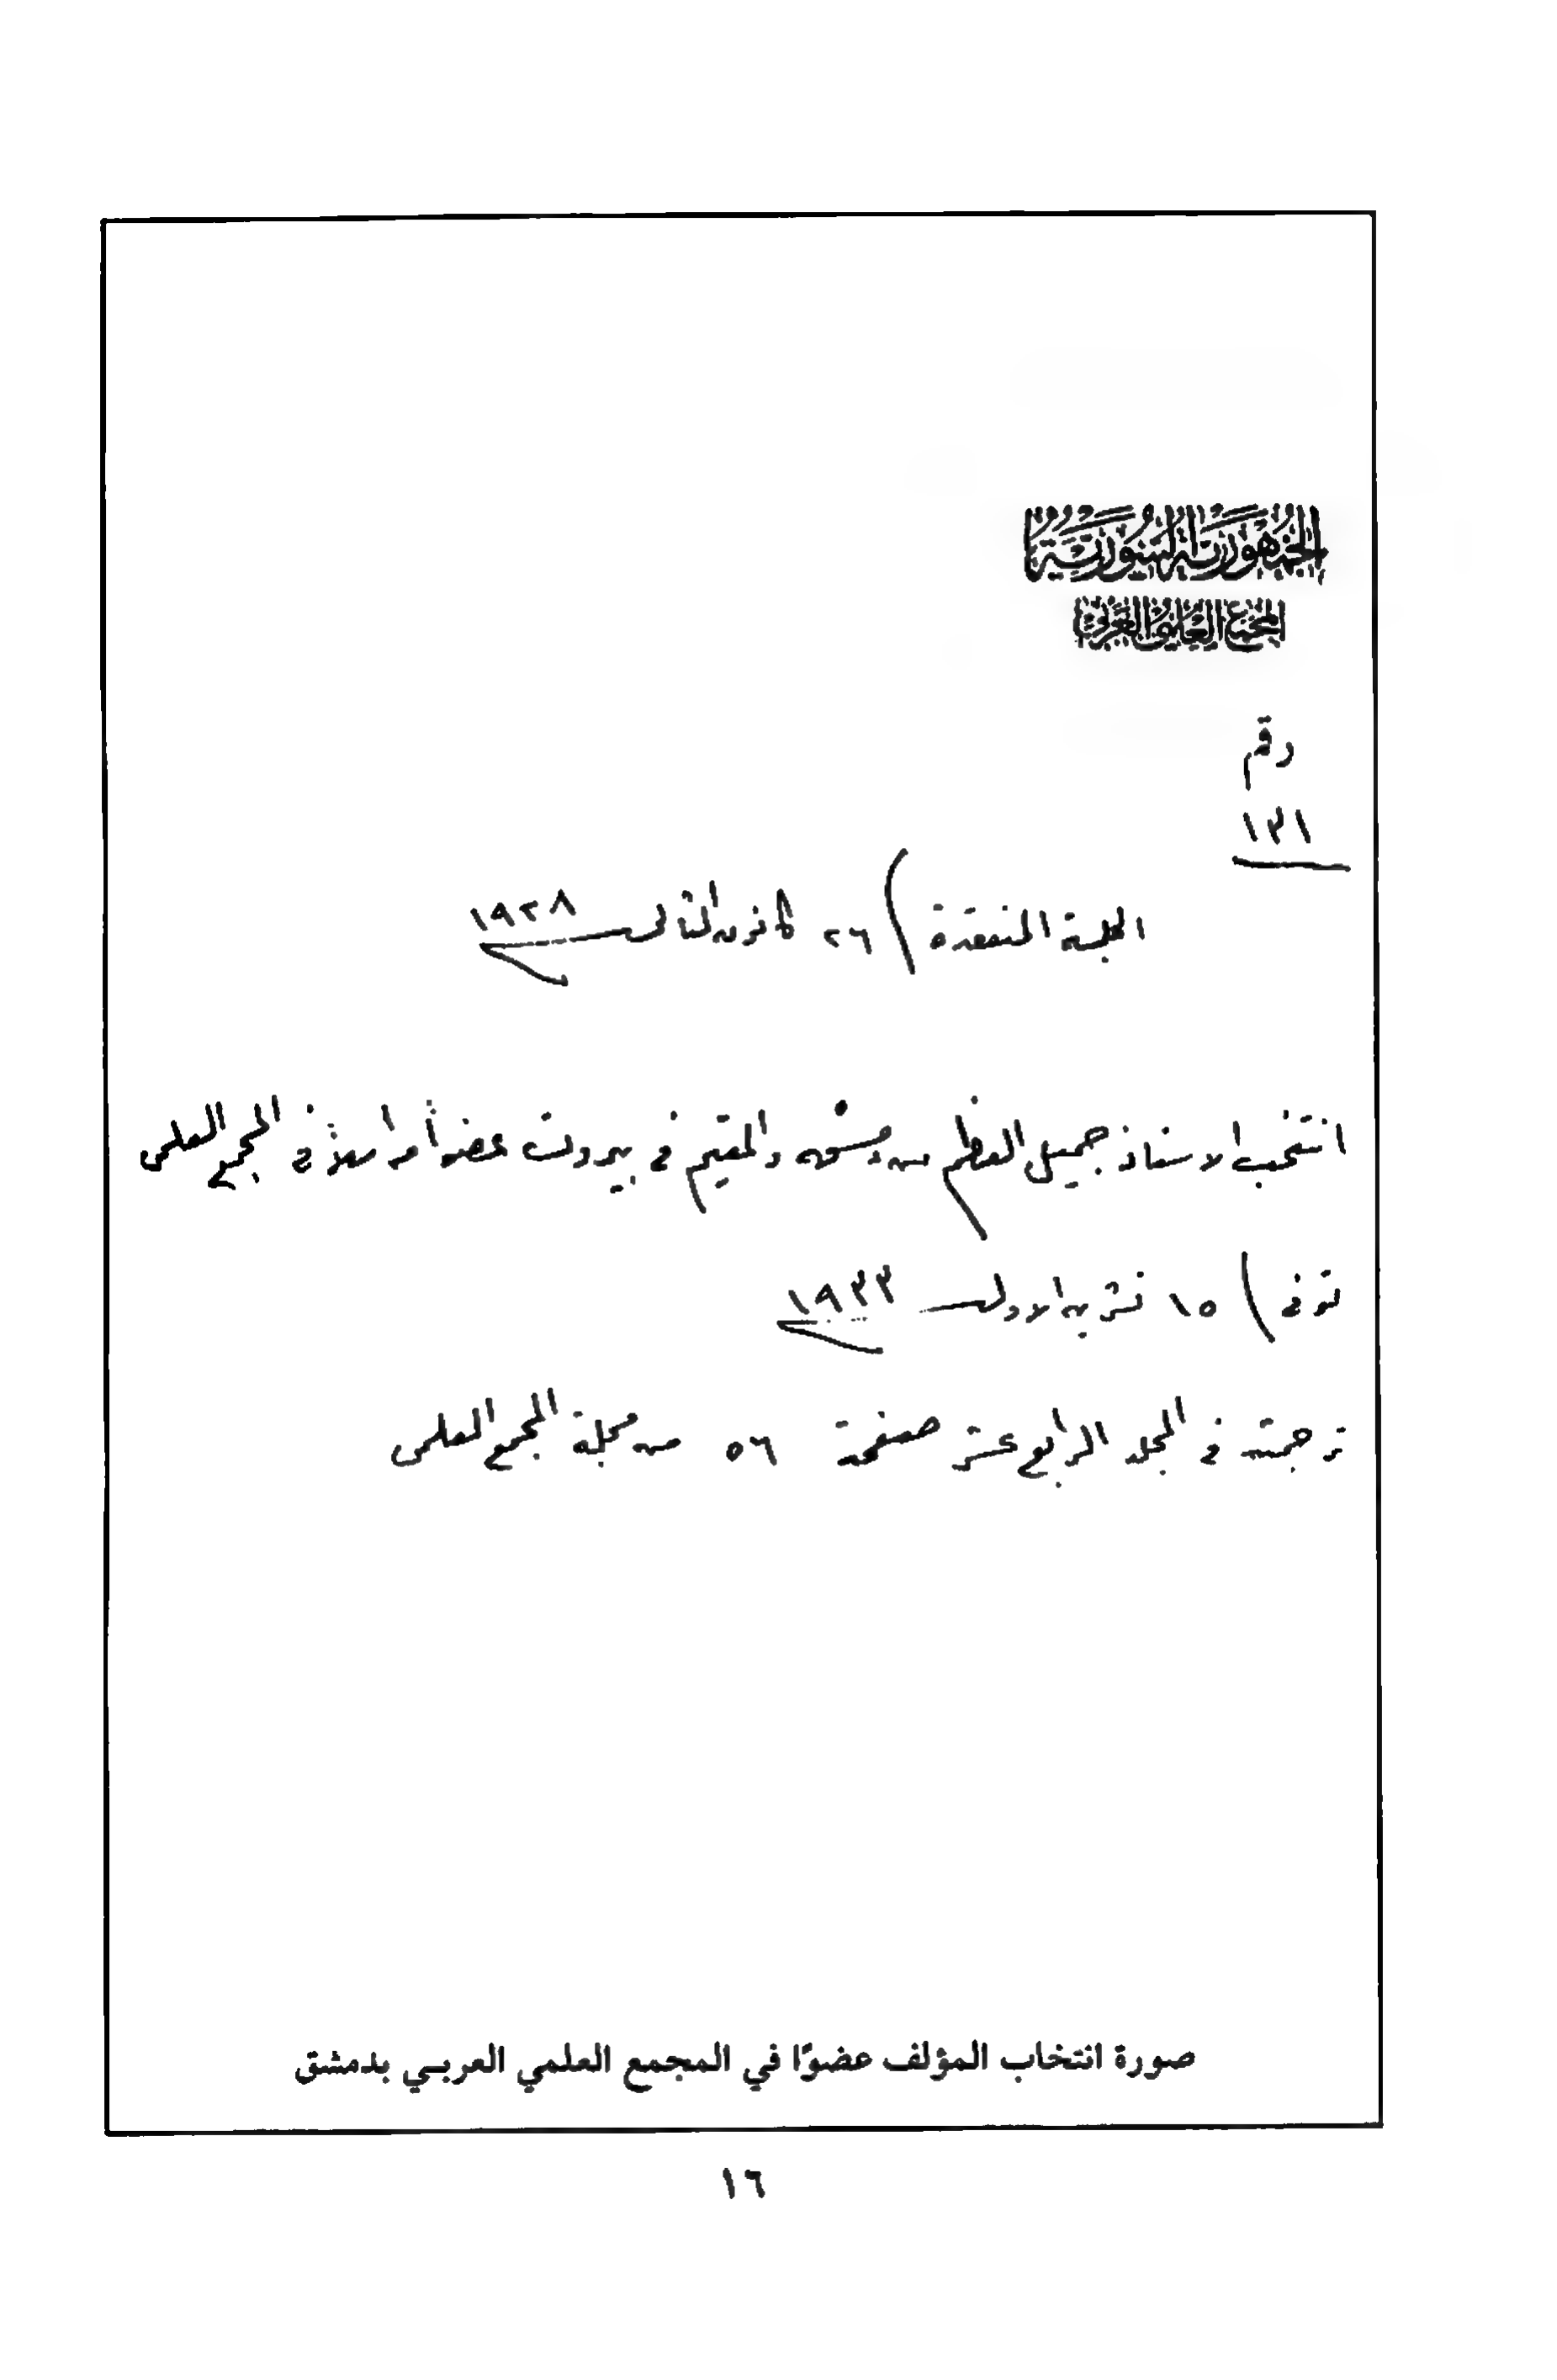 الجمهورية السورية
المجمع العلمي العربي
رقم
١٣١
الجلسة المنعقدة) ٢٦ كانون الثاني ١٩٢٨
انتخب الاستاذ جميل العظم من دمشق والمقيم في بيروت عضواً مراسلاً في المجمع العلمي
توفي) ١٥ تشرين الاول ١٩٣٣
ترجمته في المجلد الرابع عشر صفحة ٥٦ من مجلة المجمع العلمي
صورة انتخاب المؤلف عضوًا في المجمع العلمي العربي بدمشق
١٦